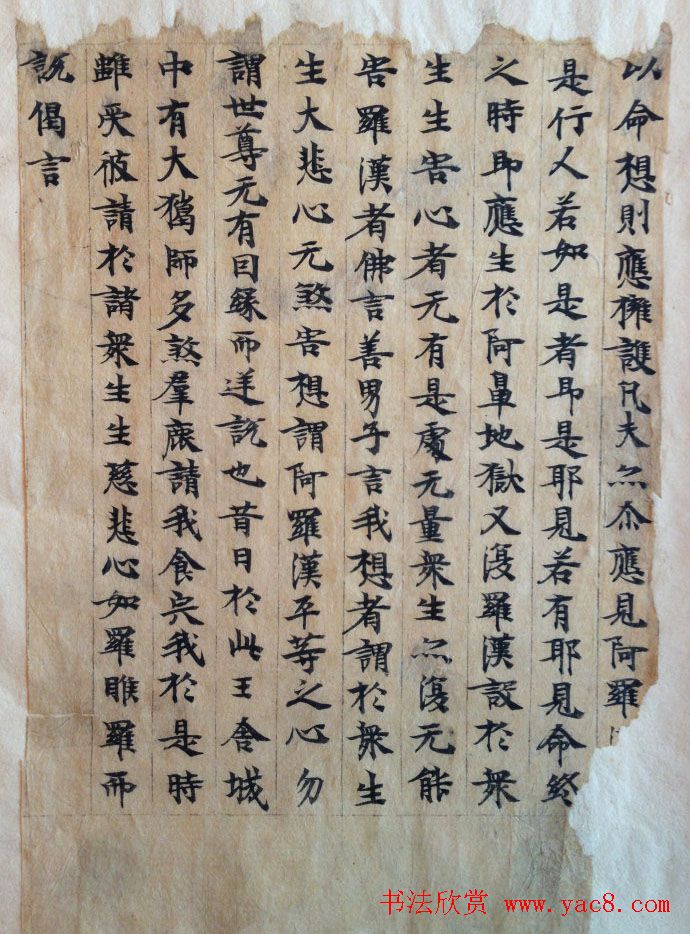 以命想則應擁護凡夫亦尒應見阿羅
是行人若如是者即是耶見若有耶見命終
之時即應生於阿鼻地獄又復羅漢設於衆
生生害心者无有是處无量衆生亦復无能
害羅漢者佛言善男子言我想者謂於衆生
生大悲心无煞害想謂阿羅漢平等之心勿
謂世尊无有因緣而逆說也昔日於此王舍城
中有大獵師多煞羣鹿請我食肉我於是時
雖受彼請於諸衆生生慈悲心如羅睺羅而
說偈言
书法欣赏 www.yac8.com